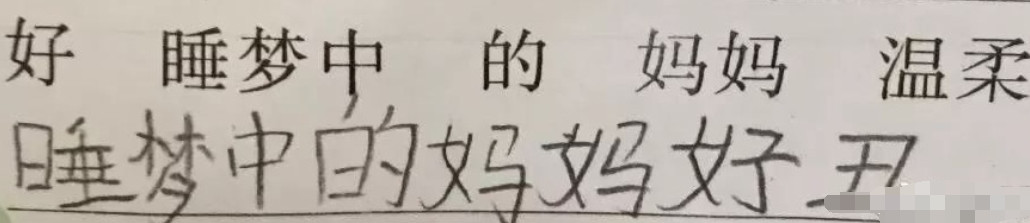 好 睡梦中 的 妈妈 温柔
睡梦中的妈妈好丑